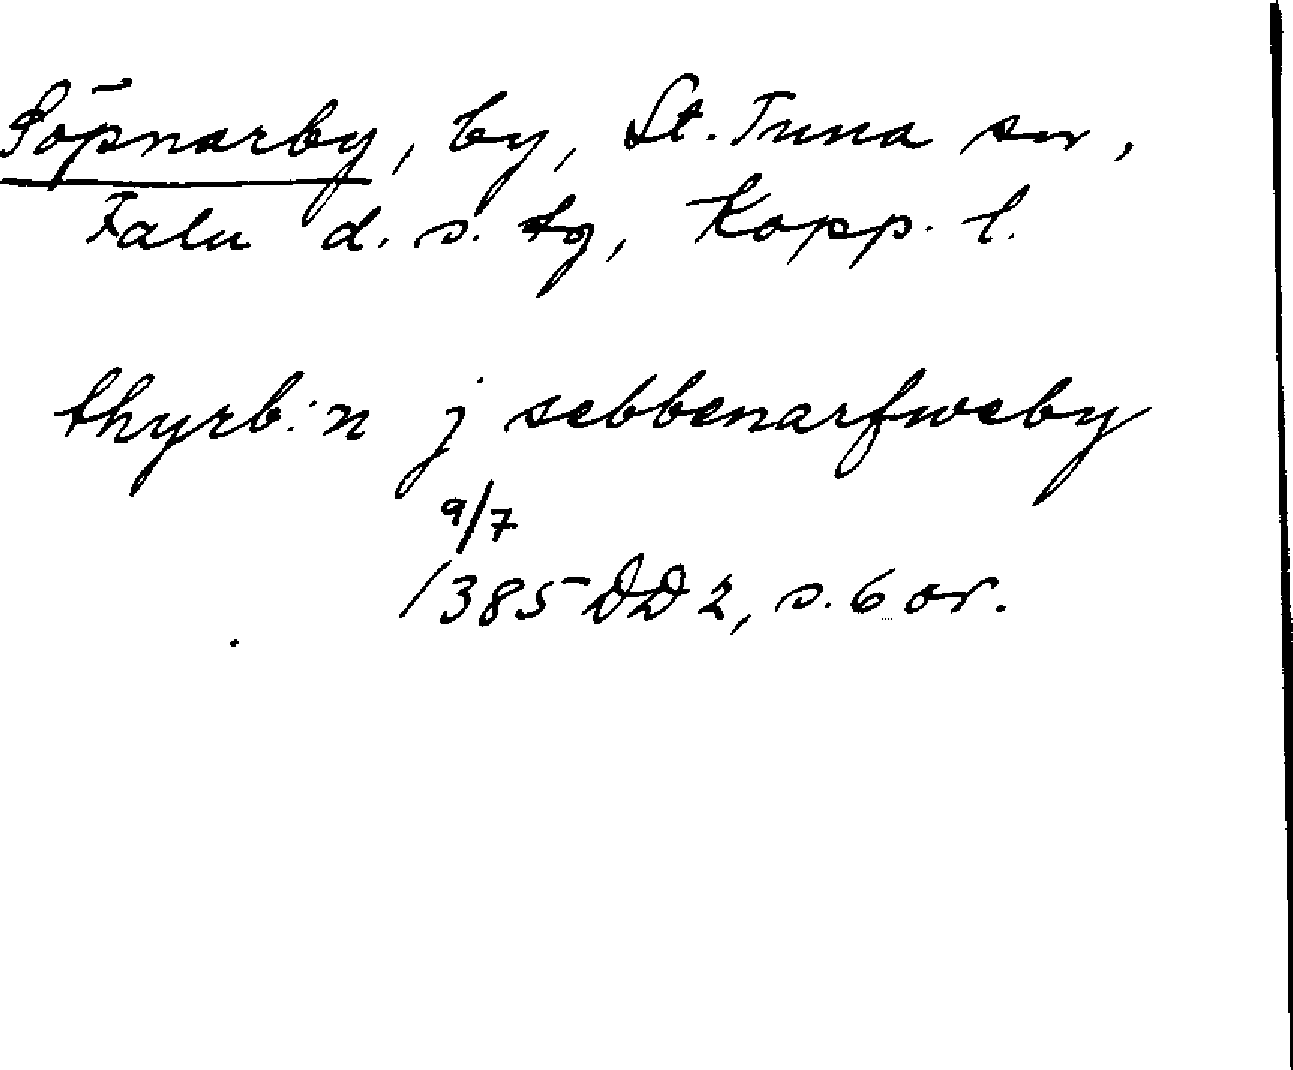 Söpnarby, by, St. Tuna sn,
Falu d. s. tg, Kopp. l.
thyrb:n j sebbenarfweby
9/7
1385 DD 2, s. 6 or.